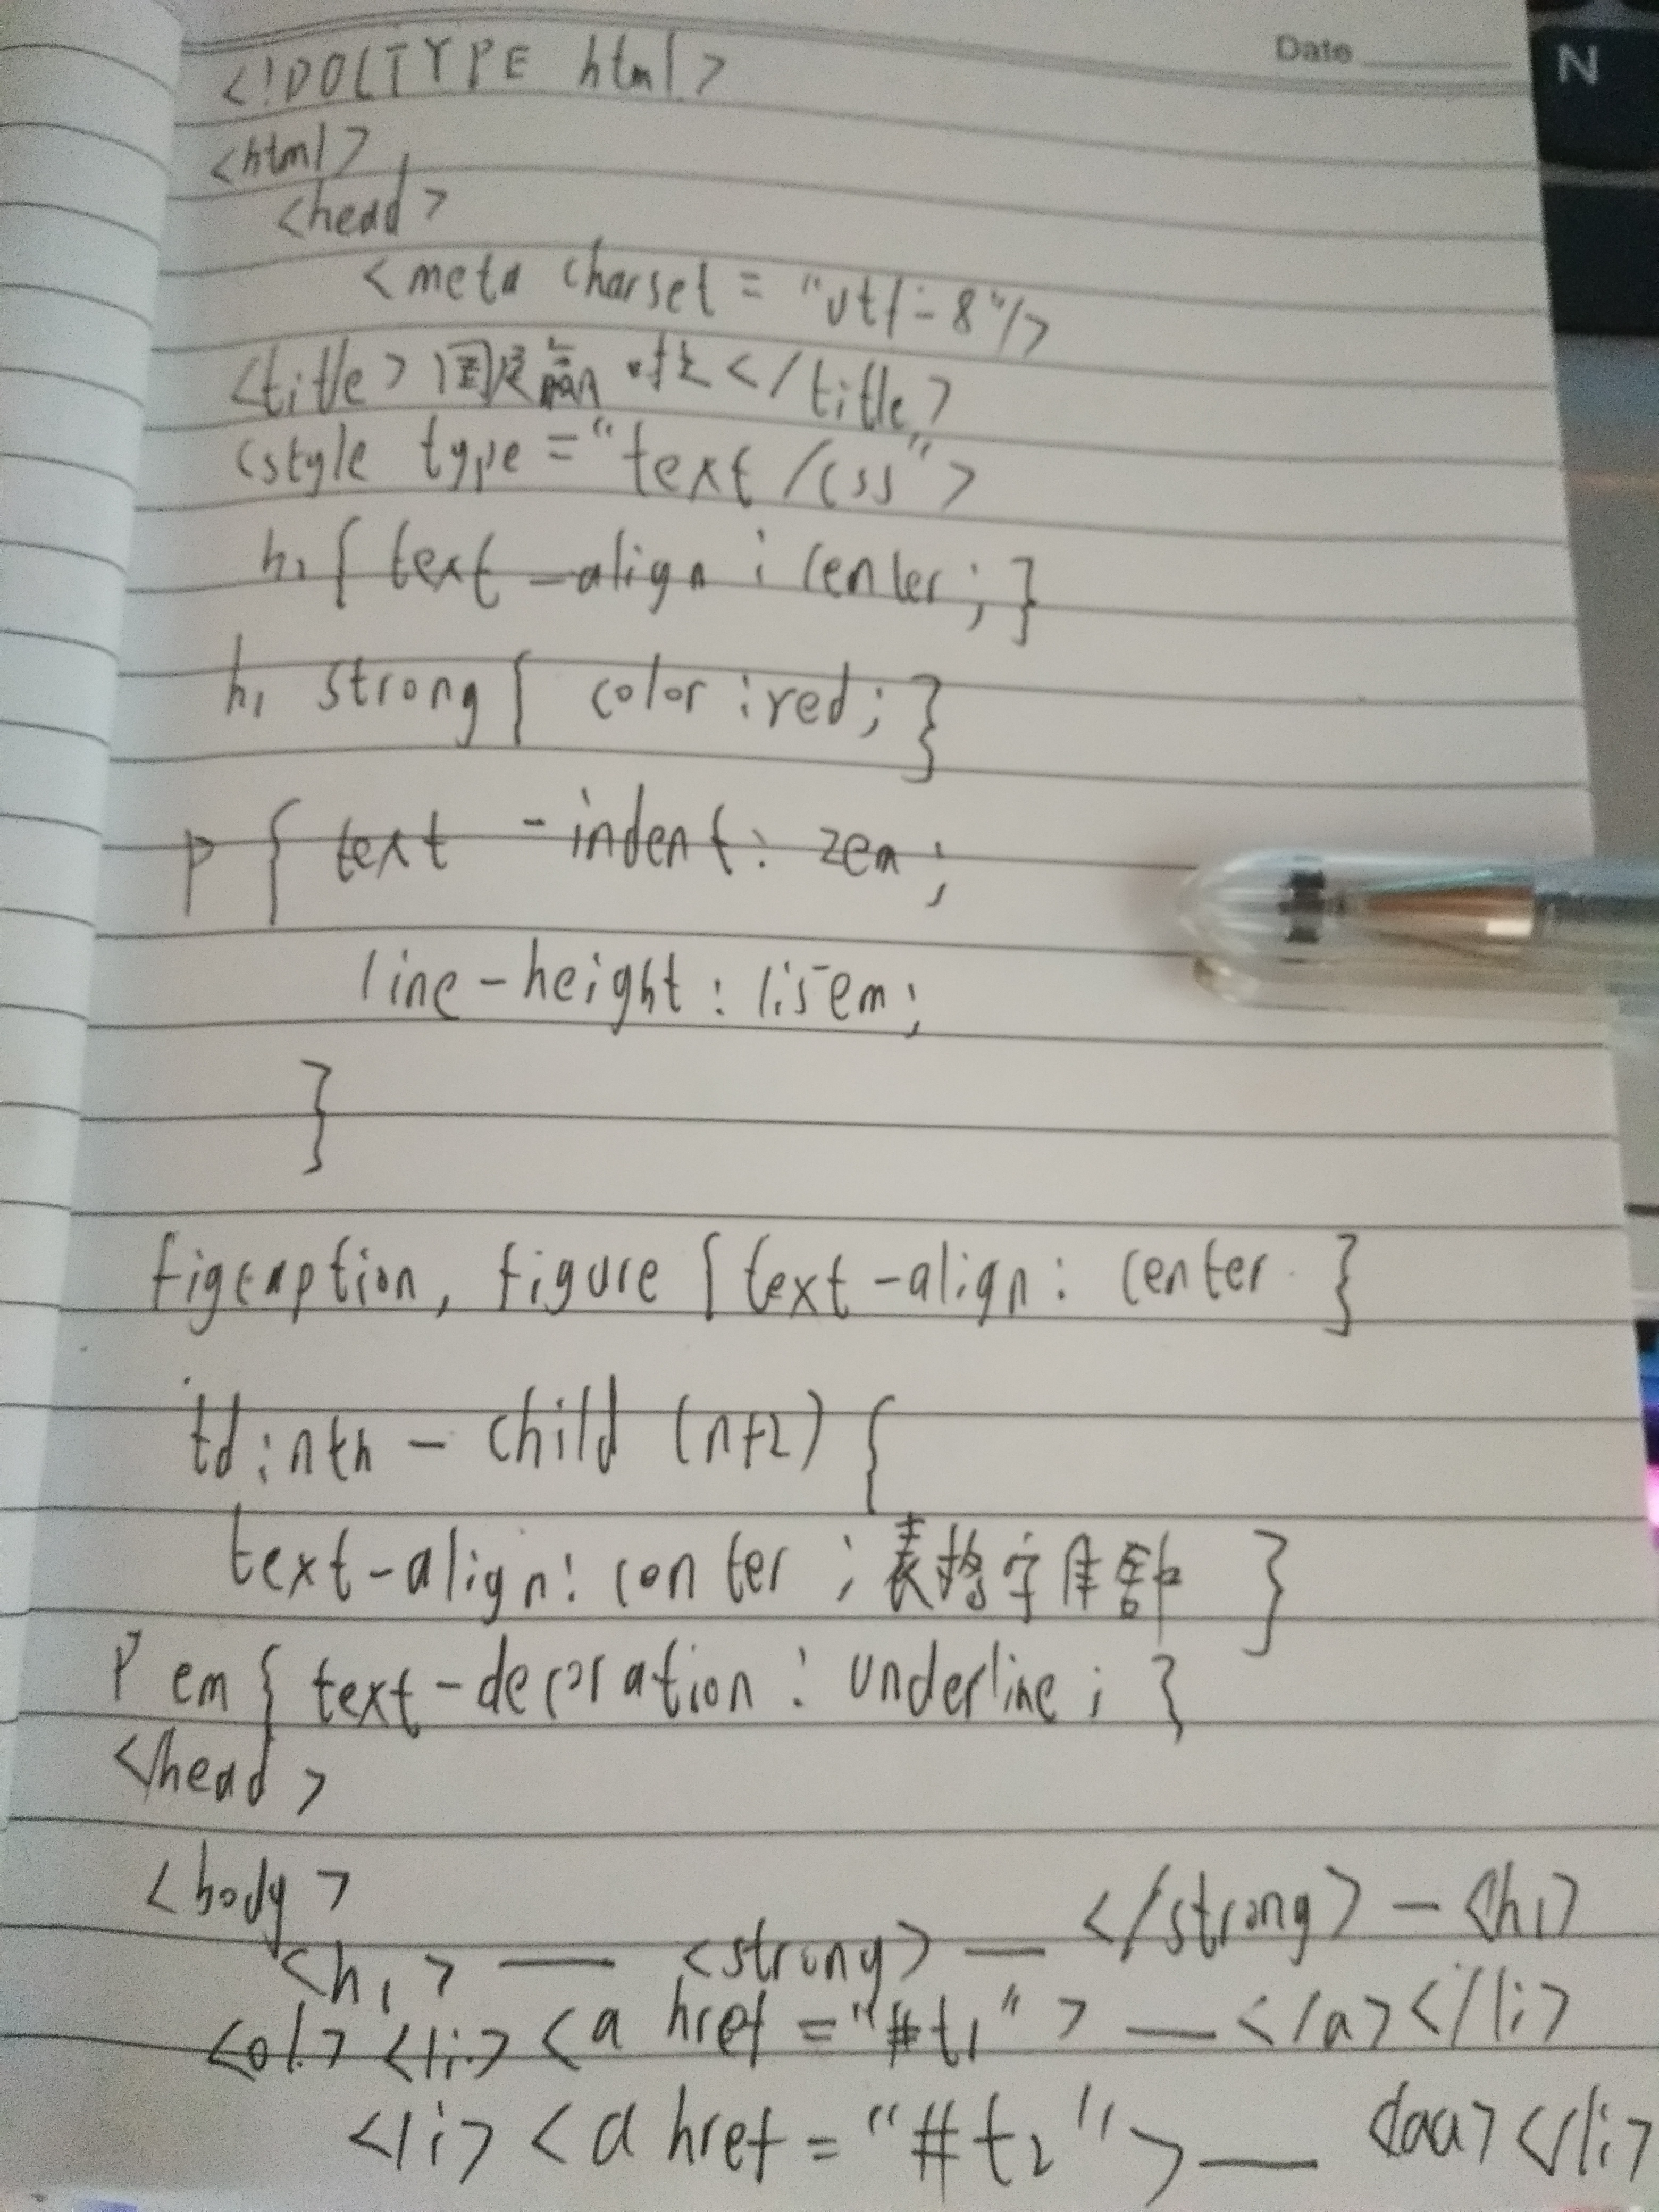 Date
N
<!DOCTYPE html>
<html>
<head>
<meta charset = "utf-8"/>
<title> </title>
<style type="text/css">
h1{ text-align : center; }
h1 strong{ color:red; }
p { text-indent: 2em;
line-height: 1.5em;
}
figcaption, figure {text-align: center }
td:nth-child (n+2) {
text-align: center ; 表格字 }
P em{ text-decoration: underline; }
</head>
<body>
<h1> — <strong> — </strong> — <h1>
<ol> <li> <a href ="#t1"> — </a></li>
<li> <a href = "#t2"> — </li>